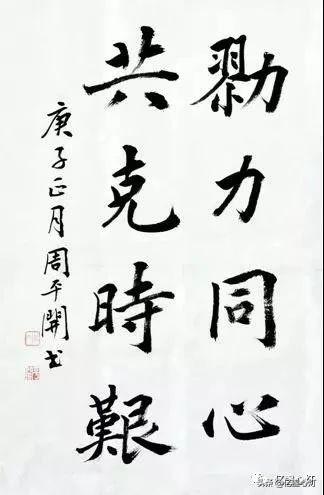 勠力同心
共克時艱
庚子正月周平開书